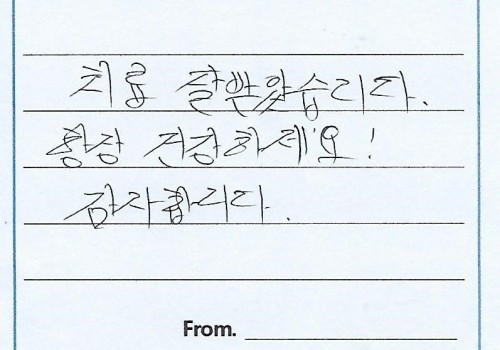 치료 잘받았습니다.
항상 건강하세요!
감사합니다.
From.